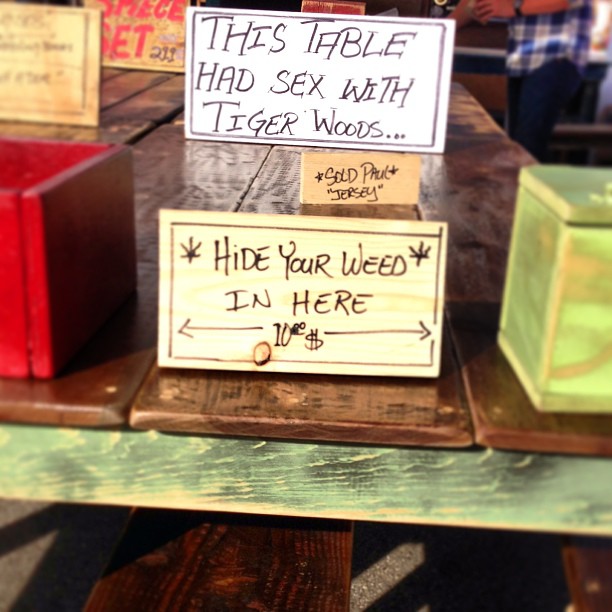 THIS TABLE
HAD SEX WITH
TIGER WOODS...
*SOLD PAUL*
"JERSEY"
HIDE YOUR WEED
IN HERE
10.00 $